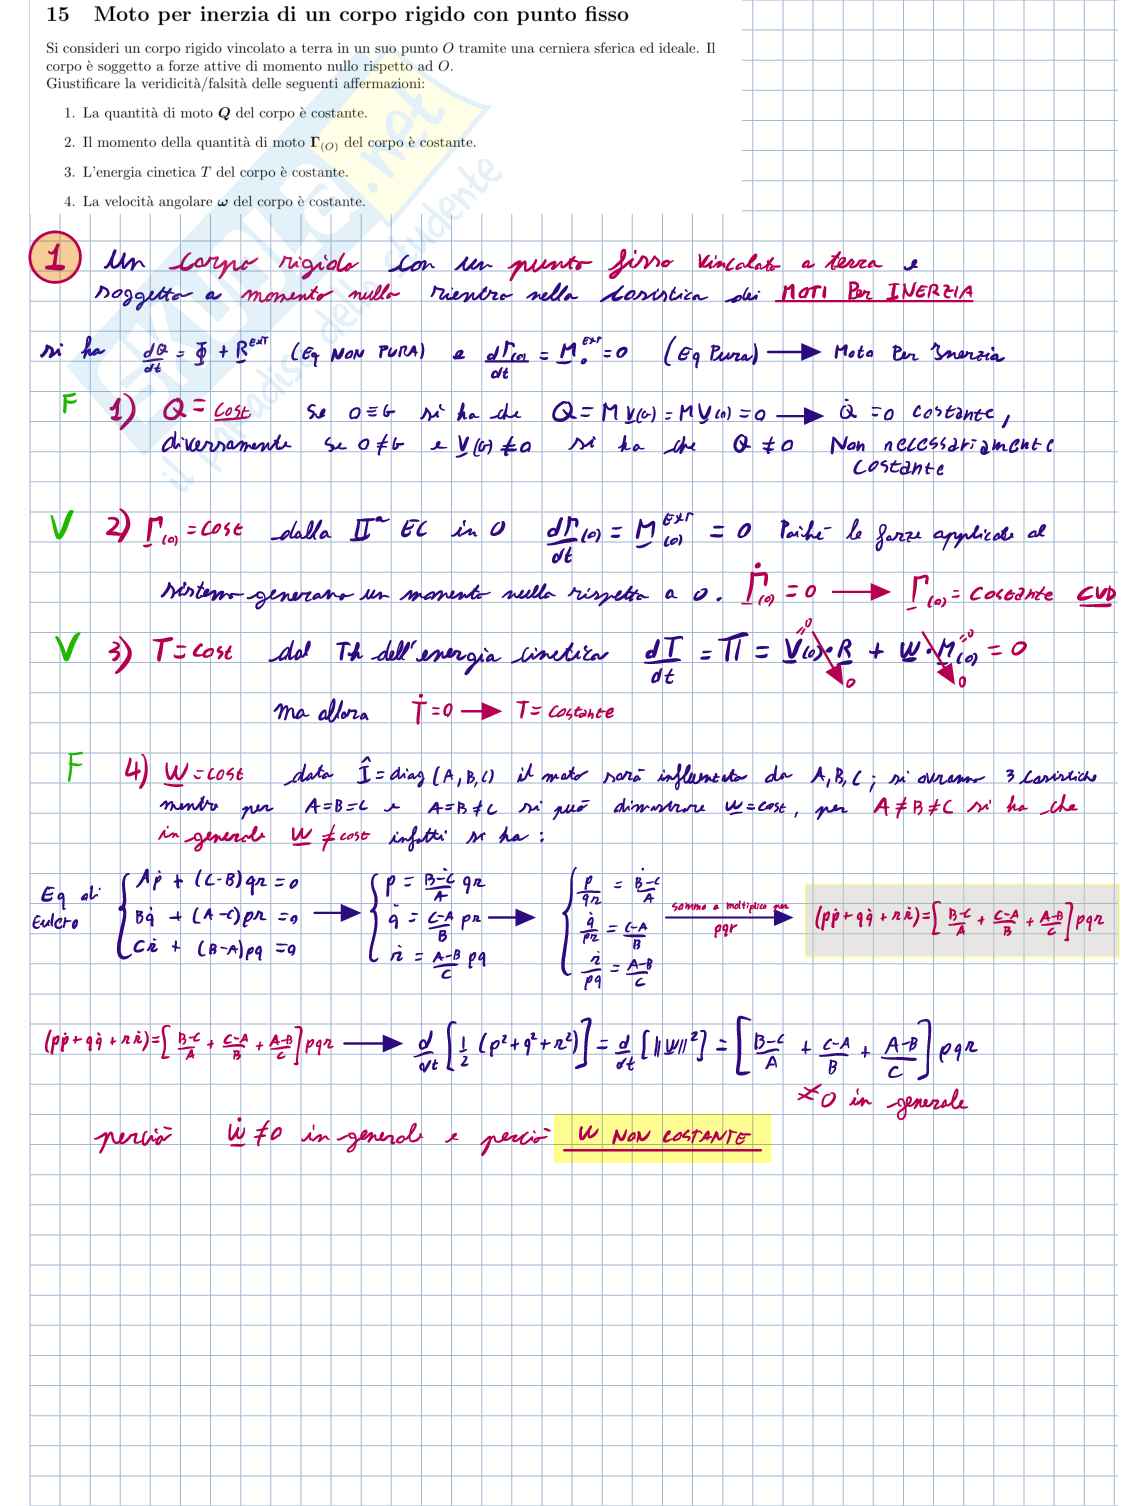 15 Moto per inerzia di un corpo rigido con punto fisso
Si consideri un corpo rigido vincolato a terra in un suo punto O tramite una cerniera sferica ed ideale. Il
corpo è soggetto a forze attive di momento nullo rispetto ad O.
Giustificare la veridicità/falsità delle seguenti affermazioni:
1. La quantità di moto Q del corpo è costante.
2. Il momento della quantità di moto Γ(O) del corpo è costante.
3. L'energia cinetica T del corpo è costante.
4. La velocità angolare ω del corpo è costante.
SKUOLA.net
il paradiso dello studente
1 Un corpo rigido con un punto fisso vincolato a terra e
soggetto a momento nullo rientra nella casistica dei MOTI Per INERZIA
si ha dQ/dt = Φ + R^ext (Eq NON PURA) e dΓ(O)/dt = M_o^ext = 0 (Eq Pura) → Moto Per Inerzia
F 1) Q = cost se O≡G si ha che Q = M V(G) = M V(O) = 0 → Q̇ = 0 costante,
diversamente se O ≠ G e V(G) ≠ 0 si ha che Q ≠ 0 Non necessariamente
costante
V 2) Γ(O) = cost dalla IIª EC in O dΓ(O)/dt = M(O)^ext = 0 Poiché le forze applicate al
sistema generano un momento nullo rispetto a O. Γ̇(O) = 0 → Γ(O) = costante CVD
V 3) T = cost dal Th dell'energia cinetica dT/dt = Π = V(O)·R + W·M(O) = 0
ma allora Ṫ = 0 → T = costante
F 4) W = cost data Î = diag (A, B, C) il moto sarà influenzato da A, B, C; si avranno 3 casistiche
mentre per A=B=C e A=B≠C si può dimostrare W = cost, per A≠B≠C si ha che
in generale W ≠ cost infatti si ha:
Eq di Eulero { Aṗ + (C-B)qr = 0 → { p = B-C/A qr → { p/qr = B-C/A
Bq̇ + (A-C)pr = 0 q̇ = C-A/B pr q̇/pr = C-A/B
Cṙ + (B-A)pq = 0 ṙ = A-B/C pq ṙ/pq = A-B/C
sommo e moltiplico per pqr → (pṗ + qq̇ + rṙ) = [B-C/A + C-A/B + A-B/C] pqr
(pṗ + qq̇ + rṙ) = [B-C/A + C-A/B + A-B/C] pqr → d/dt [1/2 (p² + q² + r²)] = d/dt [||W||²] = [B-C/A + C-A/B + A-B/C] pqr
≠ 0 in generale
perciò Ẇ ≠ 0 in generale e perciò W NON COSTANTE